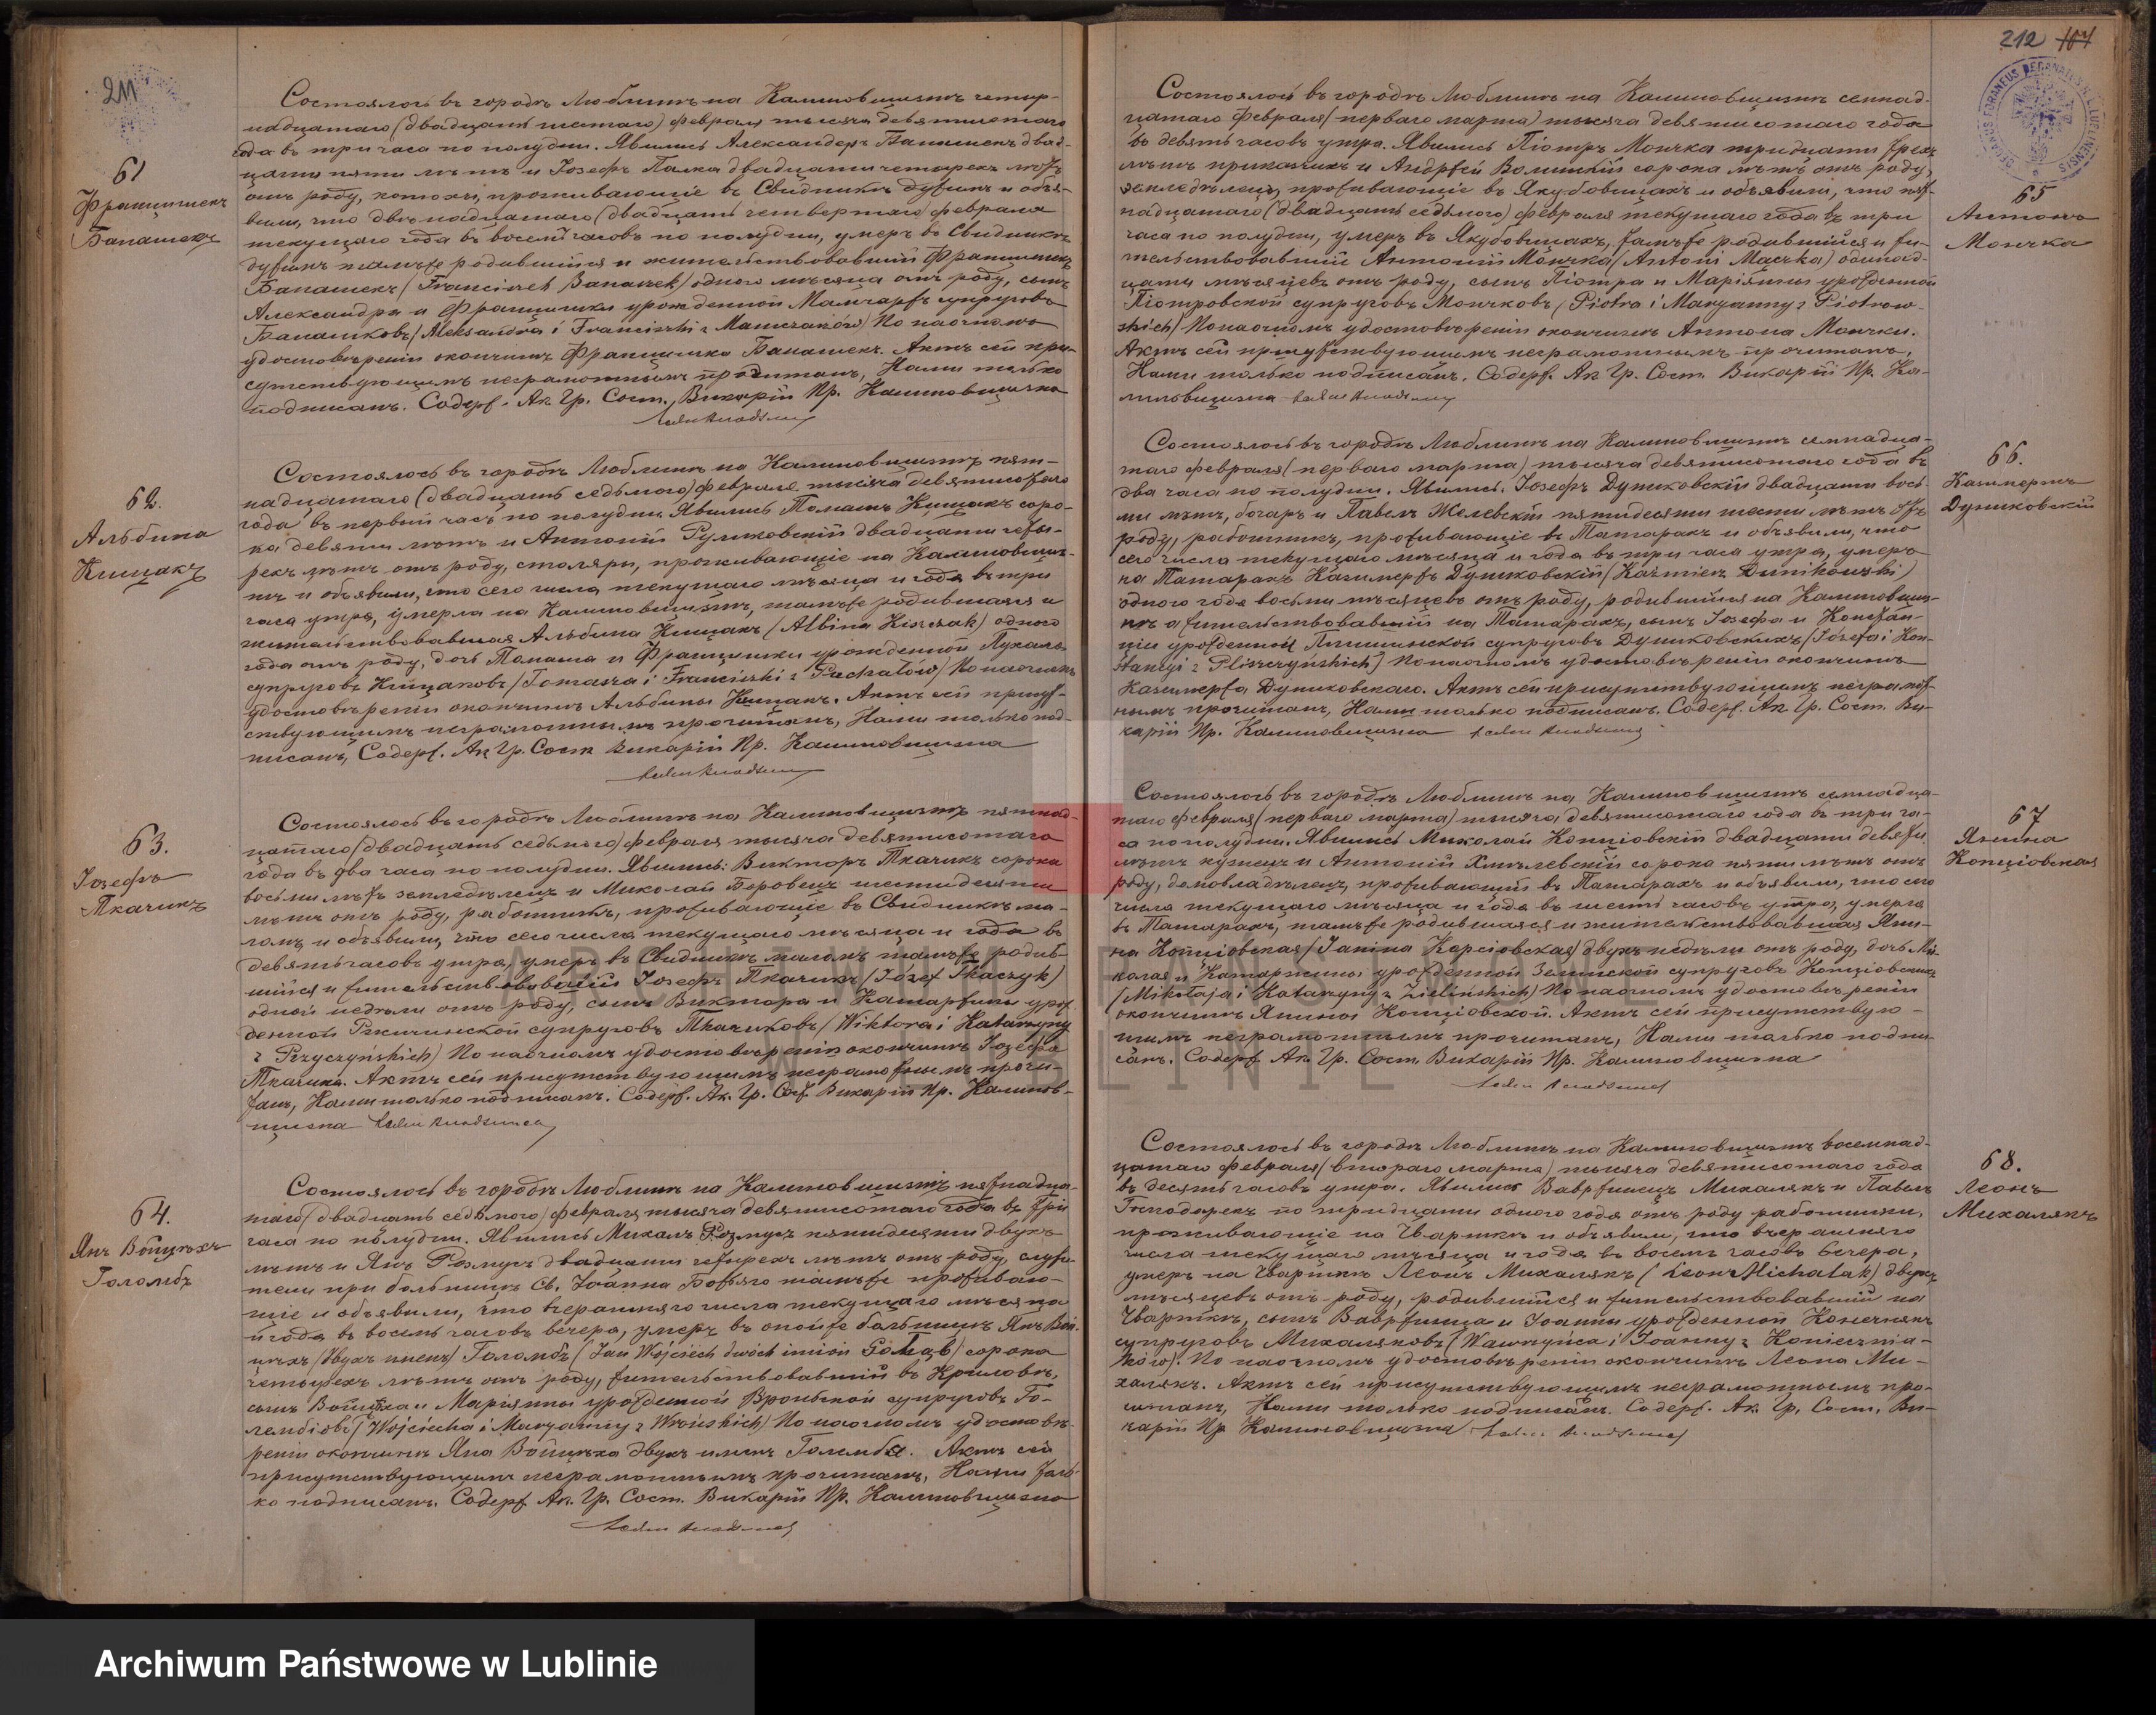 211
61
Францишекъ
Банашекъ
Состоялось въ городѣ Люблинѣ на Калиновщизнѣ четыр-
надцатаго (двадцать шестаго) февраля тысяча девятисотаго
года въ три часа по полудни. Явились Александеръ Банашекъ двад-
цати пяти лѣтъ и Іосефъ Палка двадцати четырехъ лѣтъ
отъ роду, проживающіе въ Свидникѣ дужемъ и объя-
вили, что двѣнадцатаго (двадцать четвертаго) февраля
текущаго года въ восемь часовъ по полудни, умеръ въ Свидникѣ
дужемъ тамъже родившійся и жительствовавшій Францишекъ
Банашекъ (Franciszek Banaszek) одного мѣсяца отъ роду, сынъ
Александра и Францишки урожденной Мамчаржъ супруговъ
Банашковъ (Aleksandra i Franciszki z Mamczarzów) По наочномъ
удостовѣреніи окончинѣ Францишка Банашекъ. Актъ сей при-
сутствующимъ неграмотнымъ прочитанъ, Нами только
подписанъ. Содерж. Ак. Гр. Сост. Викарій Пр. Калиновщизна
62.
Альбина
Кищакъ
Состоялось въ городѣ Люблинѣ на Калиновщизнѣ пят-
надцатаго (двадцать седьмого) февраля тысяча девятисотаго
года въ первый часъ по полудни. Явились Томашъ Кищакъ соро-
ка девяти лѣтъ и Антоній Гулковскій двадцати четы-
рехъ лѣтъ отъ роду, столяры, проживающіе на Калиновщиз-
нѣ и объявили, что сего числа текущаго мѣсяца и года въ три
часа утра, умерла на Калиновщизнѣ, тамъже родившаяся и
жительствовавшая Альбина Кищакъ (Albina Kiszczak) одного
года отъ роду, дочь Томаша и Францишки урожденной Пухала
супруговъ Кищаковъ (Tomasza i Franciszki z Puchałów) По наочномъ
удостовѣреніи окончинѣ Альбины Кищакъ. Актъ сей присут-
ствующимъ неграмотнымъ прочитанъ, Нами только под-
писанъ, Содерж. Ак. Гр. Сост. Викарій Пр. Калиновщизна
63.
Іозефъ
Ткачикъ
Состоялось въ городѣ Люблинѣ на Калиновщизнѣ пятнад-
цатаго (двадцать седьмого) февраля тысяча девятисотаго
года въ два часа по полудни. Явились: Викторъ Ткачикъ сорока
восьми лѣтъ земледѣлецъ и Миколай Боровецъ шестидесяти
лѣтъ отъ роду, работникъ, проживающіе въ Свидникѣ ма-
ломъ и объявили, что сего числа текущаго мѣсяца и года въ
девять часовъ утра, умеръ въ Свидникѣ маломъ тамъже родив-
шійся и жительствовавшій Іозефъ Ткачикъ (Józef Tkaczyk)
одной недѣли отъ роду, сынъ Виктора и Катаржины урож-
денной Пжичинской супруговъ Ткачиковъ (Wiktora i Katarzyny
z Przyczyńskich) По наочномъ удостовѣреніи окончинѣ Іозефа
Ткачика. Актъ сей присутствующимъ неграмотнымъ прочи-
танъ, Нами только подписанъ. Содерж. Ак. Гр. Сост. Викарій Пр. Калинов-
щизна
64.
Янъ Войцѣхъ
Голомбъ
Состоялось въ городѣ Люблинѣ на Калиновщизнѣ пятнадца-
таго (двадцать седьмого) февраля тысяча девятисотаго года въ три
часа по полудни. Явились Михалъ Розмусъ пятидесяти двухъ
лѣтъ и Янъ Розмусъ двадцати четырехъ лѣтъ отъ роду, служи-
тели при больницѣ Св. Іоанна Божьяго тамъже проживаю-
щіе и объявили, что вчерашняго числа текущаго мѣсяца
и года въ восемь часовъ вечера, умеръ въ онойже больницѣ Янъ Вой-
цѣхъ (двухъ именъ) Голомбъ (Jan Wojciech dwóch imion Gołąb) сорока
четырехъ лѣтъ отъ роду, жительствовавшій въ Крыловѣ,
сынъ Войцѣха и Маріанны урожденной Вронской супруговъ Го-
лембіовъ (Wojciecha i Maryanny z Wrońskich) По наочномъ удостовѣ-
реніи окончинѣ Яна Войцѣха двухъ именъ Голомба. Актъ сей
присутствующимъ неграмотнымъ прочитанъ, Нами толь-
ко подписанъ. Содерж. Ак. Гр. Сост. Викарій Пр. Калиновщизна
212 104
65
Антонъ
Мончка
Состоялось въ городѣ Люблинѣ на Калиновщизнѣ семнад-
цатаго февраля (перваго марта) тысяча девятисотаго года
въ девять часовъ утра. Явились Піотръ Мончка тридцати трехъ
лѣтъ прикащикъ и Андржей Волинскій сорока лѣтъ отъ роду,
земледѣлецъ, проживающіе въ Якубовицахъ и объявили, что пят-
надцатаго (двадцать седьмого) февраля текущаго года въ три
часа по полудни, умеръ въ Якубовицахъ, тамъже родившійся и жи-
тельствовавшій Антоній Мончка (Antoni Mączka) одинад-
цати мѣсяцевъ отъ роду, сынъ Піотра и Маріянны урожденной
Піотровской супруговъ Мончковъ (Piotra i Maryanny z Piotrow-
skich) По наочномъ удостовѣреніи окончинѣ Антона Мончки.
Актъ сей присутствующимъ неграмотнымъ прочитанъ,
Нами только подписанъ. Содерж. Ак. Гр. Сост. Викарій Пр. Ка-
линовщизна
66.
Казимержъ
Дуниковскій
Состоялось въ городѣ Люблинѣ на Калиновщизнѣ семнадца-
таго февраля (перваго марта) тысяча девятисотаго года въ
два часа по полудни. Явились: Іозефъ Дуниковскій двадцати вось-
ми лѣтъ, бочаръ и Павелъ Желевскій пятидесяти шести лѣтъ отъ
роду, работникъ, проживающіе въ Татарахъ и объявили, что
сего числа текущаго мѣсяца и года въ три часа утра, умеръ
на Татарахъ Казимержъ Дуниковскій (Kaźmierz Dunikowski)
одного года восьми мѣсяцевъ отъ роду, родившійся на Калиновщиз-
нѣ а жительствовавшій на Татарахъ, сынъ Іозефа и Констан-
ціи урожденной Плищинской супруговъ Дуниковскихъ (Józefa i Kon-
stancyi z Pliszczyńskich) По наочномъ удостовѣреніи окончинѣ
Казимержа Дуниковскаго. Актъ сей присутствующимъ неграмот-
нымъ прочитанъ, Нами только подписанъ. Содерж. Ак. Гр. Сост. Ви-
карій Пр. Калиновщизна
67
Янина
Копціовская
Состоялось въ городѣ Люблинѣ на Калиновщизнѣ семнадца-
таго февраля (перваго марта) тысяча девятисотаго года въ три ча-
са по полудни. Явились Миколай Копціовскій двадцати девяти
лѣтъ кузнецъ и Антоній Хмѣлевскій сорока пяти лѣтъ отъ
роду, домовладѣлецъ, проживающіе въ Татарахъ и объявили, что сего
числа текущаго мѣсяца и года въ шесть часовъ утра, умерла
въ Татарахъ, тамъже родившаяся и жительствовавшая Яни-
на Копціовская (Janina Kopciowska) двухъ недѣли отъ роду, дочь Ми-
колая и Катаржины урожденной Зелинской супруговъ Копціовскихъ
(Mikołaja i Katarzyny z Zielińskich) По наочномъ удостовѣреніи
окончинѣ Янины Копціовской. Актъ сей присутствую-
щимъ неграмотнымъ прочитанъ, Нами только подпи-
санъ. Содерж. Ак. Гр. Сост. Викарій Пр. Калиновщизна
68.
Леонъ
Михалякъ
Состоялось въ городѣ Люблинѣ на Калиновщизнѣ восемнад-
цатаго февраля (втораго марта) тысяча девятисотаго года
въ десять часовъ утра. Явились Вавржинецъ Михалякъ и Павелъ
Господарекъ по тридцати одного года отъ роду работники,
проживающіе на Чварткѣ и объявили, что вчерашняго
числа текущаго мѣсяца и года въ восемь часовъ вечера,
умеръ на Чварткѣ Леонъ Михалякъ (Leon Michalak) двухъ
мѣсяцевъ отъ роду, родившійся и жительствовавшій на
Чварткѣ, сынъ Вавржинца и Іоанны урожденной Конечнякъ
супруговъ Михаляковъ (Wawrzyńca i Joanny z Koniecznia-
ków). По наочномъ удостовѣреніи окончинѣ Леона Ми-
халякъ. Актъ сей присутствующимъ неграмотнымъ про-
читанъ, Нами только подписанъ. Содерж. Ак. Гр. Сост. Ви-
карій Пр. Калиновщизна
Archiwum Państwowe w Lublinie